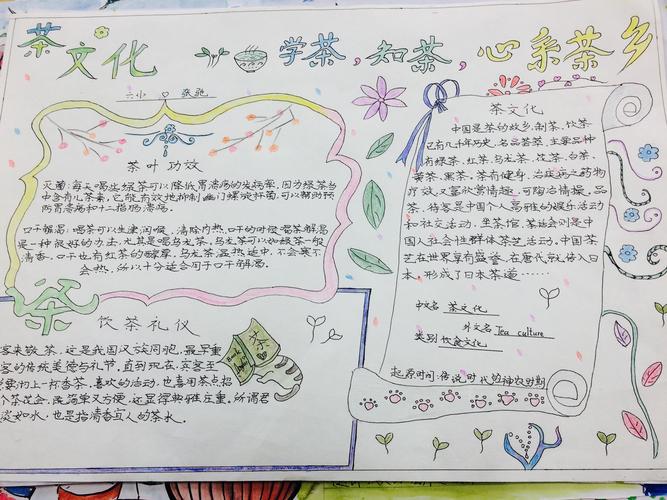 茶文化
学茶,知茶,心系茶乡
六小 张驰
茶叶功效
灭菌:每天喝些绿茶可以降低胃溃疡的发病率,因为绿茶当
中含有儿茶素,它能有效地抑制幽门螺旋杆菌,可以帮助预
防胃溃疡和十二指肠溃疡。
口干解渴:喝茶可以生津润喉,清除内热,口干的时候喝茶解渴
是一种很好的办法,尤其是喝乌龙茶,乌龙茶可以如绿茶一般
清香,口干也有红茶的醇厚,乌龙茶温热适中,不会寒不
会热,所以十分适合用于口干解渴。
茶
饮茶礼仪
客来敬茶,这是我国汉族同胞,最早重
客的传统美德与礼节。直到现在,宾客至
沏上一杯香茶,喜欢的活动,也喜用茶点招
个茶花会,既简单又方便,还显得典雅庄重。所谓君
淡如水,也是指清香宜人的茶水
Book
茶
茶文化
中国是茶的故乡,制茶、饮茶
已有几千年历史,名品荟萃,主要品种
有绿茶、红茶、乌龙茶、花茶、白茶、
黄茶、黑茶。茶有健身、治疾病之药物
疗效,又富欣赏情趣,可陶冶情操。品
茶、待客是中国个人高雅的娱乐活动
和社交活动,坐茶馆、茶话会则是中
国人社会性群体茶艺活动。中国茶
艺在世界享有盛誉,在唐代就传入日
本,形成了日本茶道……
中文名 茶文化
外文名 Tea culture
类别 饮食文化
起源时间:传说时代的神农时期